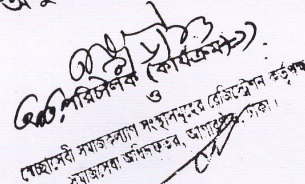 পরিচালক (কার্যক্রম)
ও
স্বেচ্ছাসেবী সমাজকল্যাণ সংস্থাসমূহের রেজিস্ট্রেশন কর্তৃপক্ষ
সমাজসেবা অধিদফতর, আগারগাঁও, ঢাকা।